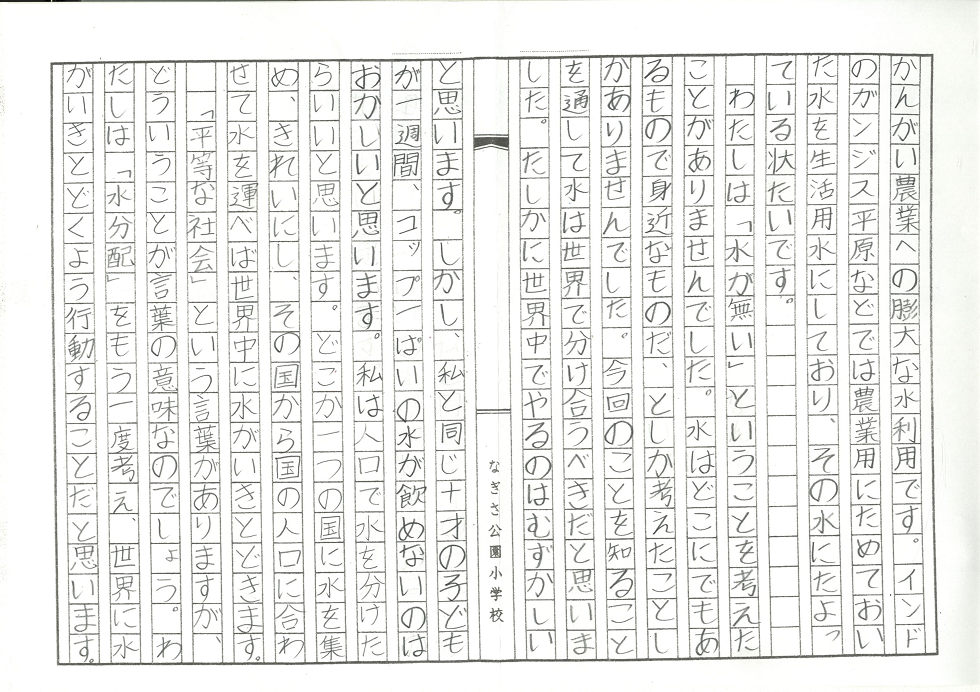 かんがい農業への膨大な水利用です。インド
のガンジス平原などでは農業用にためておい
た水を生活用水にしており、その水にたよっ
ている状たいです。
わたしは「水が無い」ということを考えた
ことがありませんでした。水はどこにでもあ
るもので身近なものだ、としか考えたことし
かありませんでした。今回のことを知ること
を通して水は世界で分け合うべきだと思いま
した。たしかに世界中でやるのはむずかしい
なぎさ公園小学校
と思います。しかし、私と同じ十才の子ども
が一週間、コップ一ぱいの水が飲めないのは
おかしいと思います。私は人口で水を分けた
らいいと思います。どこか一つの国に水を集
め、きれいにし、その国から国の人口に合わ
せて水を運べば世界中に水がいきとどきます。
「平等な社会」という言葉がありますが、
どういうことが言葉の意味なのでしょう。わ
たしは「水分配」をもう一度考え、世界に水
がいきとどくよう行動することだと思います。